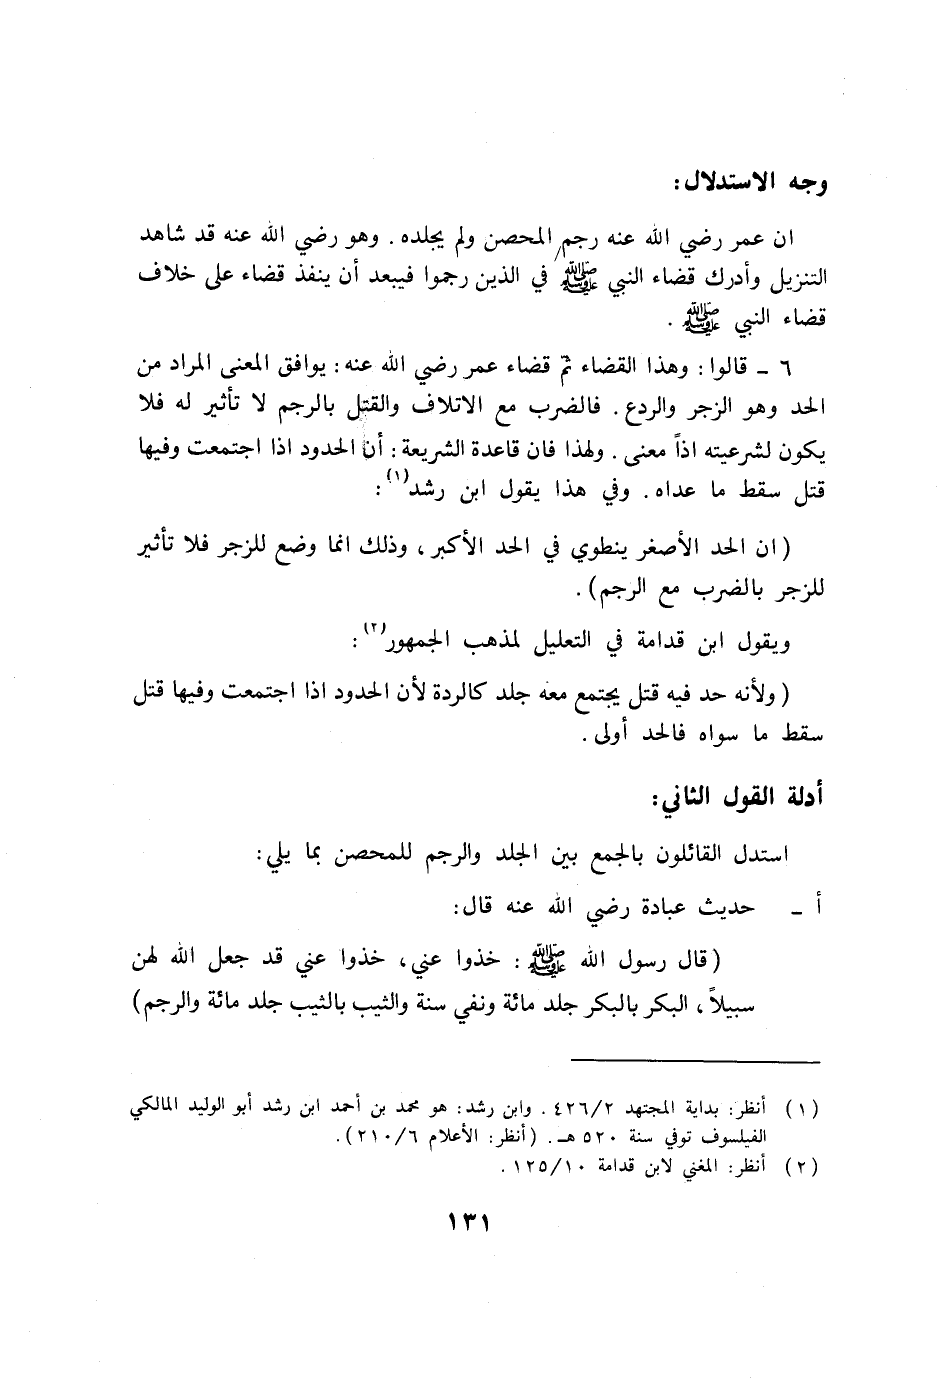 وجه الاستدلال:
ان عمر رضي الله عنه رجم المحصن ولم يجلده. وهو رضي الله عنه قد شاهد
التنزيل وأدرك قضاء النبي ﷺ في الذين رجموا فيبعد أن ينفذ قضاء على خلاف
قضاء النبي ﷺ.
٦ ـ قالوا: وهذا القضاء ثم قضاء عمر رضي الله عنه: يوافق المعنى المراد من
الحد وهو الزجر والردع. فالضرب مع الاتلاف والقتل بالرجم لا تأثير له فلا
يكون لشرعيته اذاً معنى. ولهذا فان قاعدة الشريعة: أن الحدود اذا اجتمعت وفيها
قتل سقط ما عداه. وفي هذا يقول ابن رشد(١):
(ان الحد الأصغر ينطوي في الحد الأكبر، وذلك انما وضع للزجر فلا تأثير
للزجر بالضرب مع الرجم).
ويقول ابن قدامة في التعليل لمذهب الجمهور(٢):
(ولأنه حد فيه قتل يجتمع معه جلد كالردة لأن الحدود اذا اجتمعت وفيها قتل
سقط ما سواه فالحد أولى.
أدلة القول الثاني:
استدل القائلون بالجمع بين الجلد والرجم للمحصن بما يلي:
أ ـ حديث عبادة رضي الله عنه قال:
(قال رسول الله ﷺ: خذوا عني، خذوا عني قد جعل الله لهن
سبيلاً، البكر بالبكر جلد مائة ونفي سنة والثيب بالثيب جلد مائة والرجم)
(١) أنظر: بداية المجتهد ٤٢٦/٢. وابن رشد: هو محمد بن أحمد ابن رشد أبو الوليد المالكي
الفيلسوف توفي سنة ٥٢٠ هـ. (أنظر: الأعلام ٢١٠/٦).
(٢) أنظر: المغني لابن قدامة ١٢٥/١٠.
١٣١